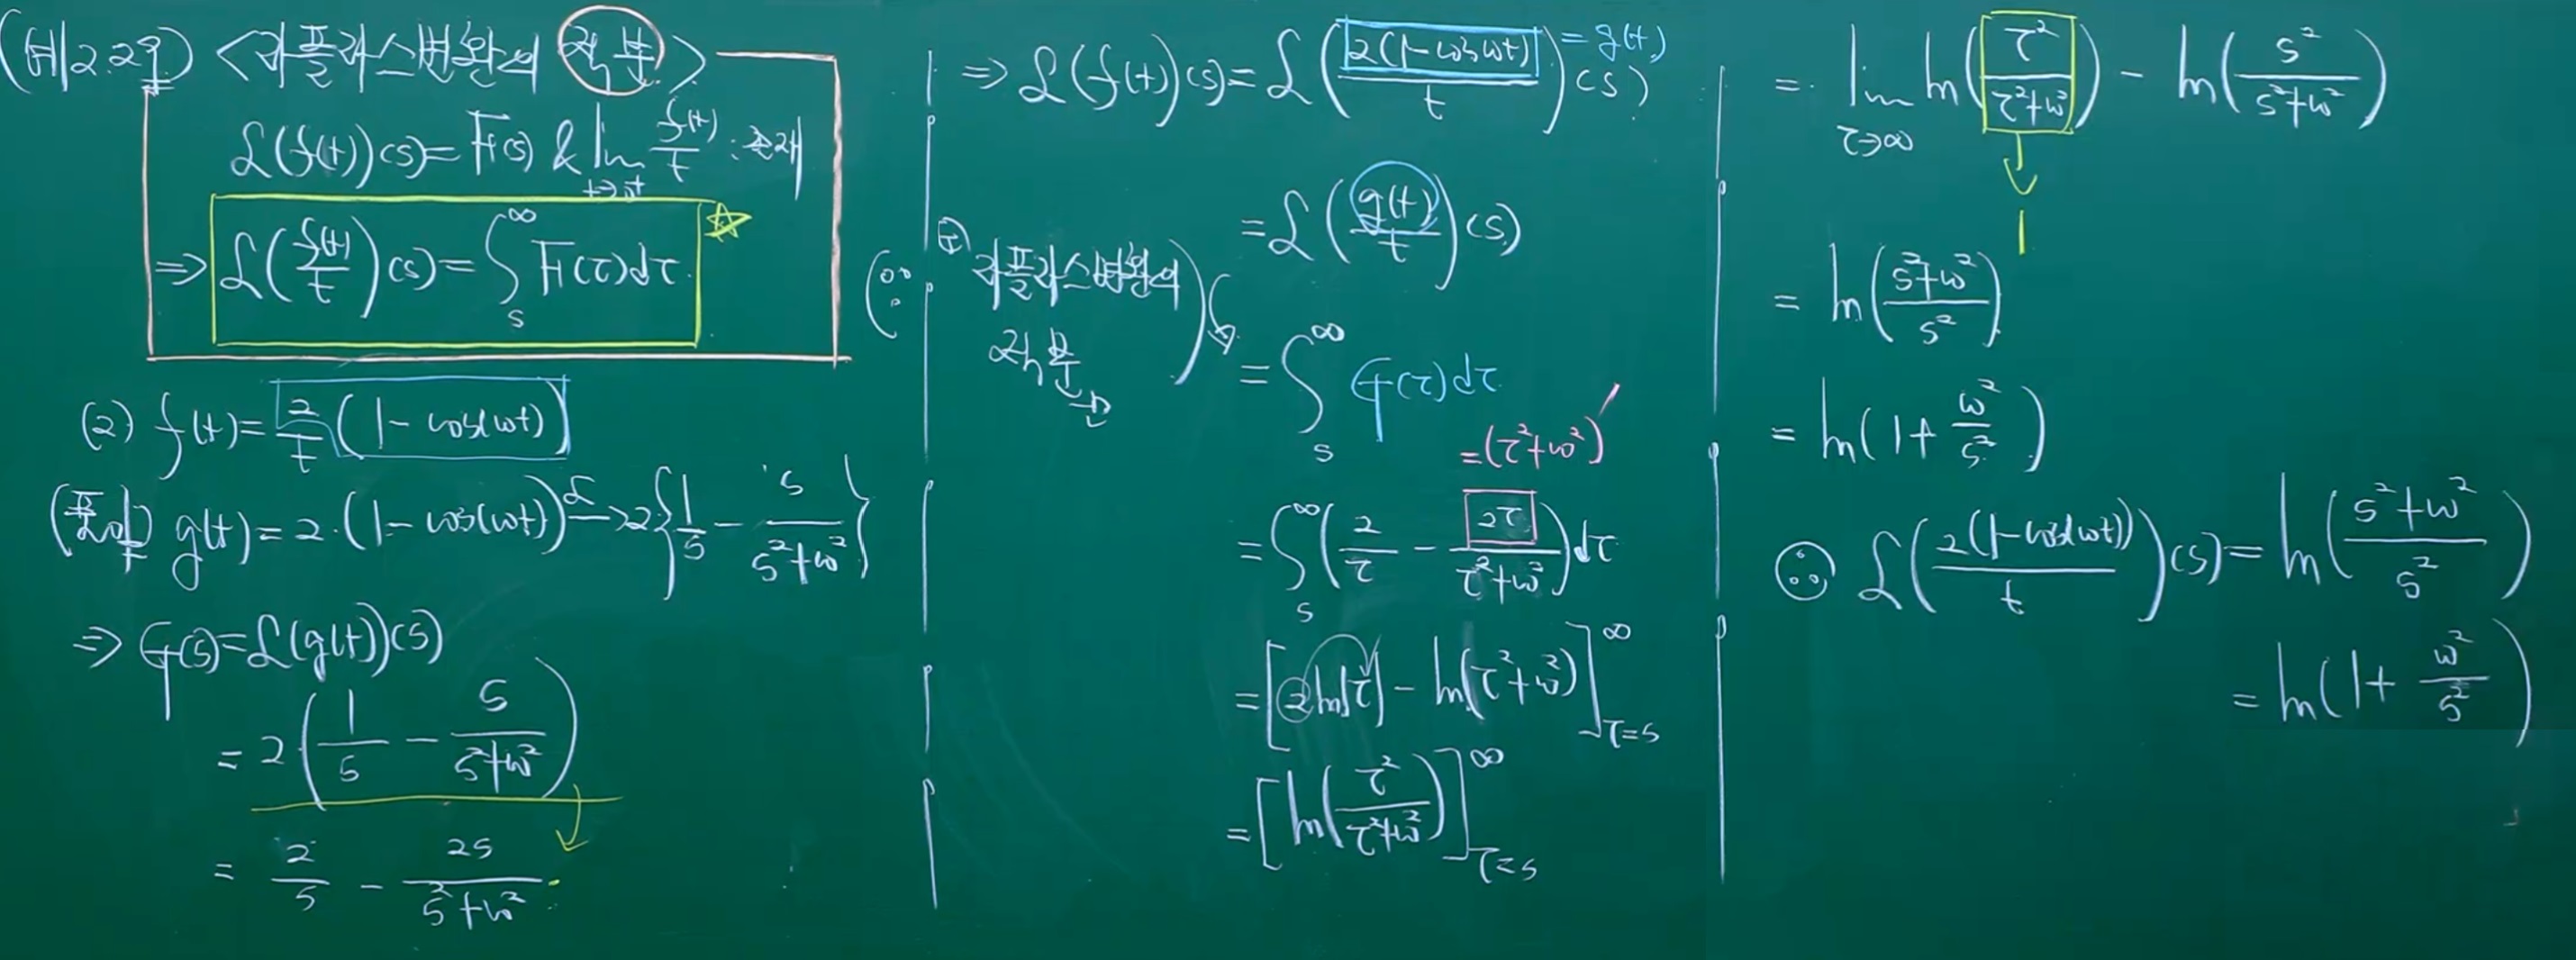 (예 2.29) <라플라스변환의 적분>
ℒ(f(t))(s) = F(s) & lim_{t→0⁺} f(t)/t : 존재
⇒ ℒ(f(t)/t)(s) = ∫_s^∞ F(τ)dτ ☆
(2) f(t) = 2/t (1 - cos(ωt))
(풀이) g(t) = 2·(1 - cos(ωt)) —ℒ→ 2{1/s - s/(s²+ω²)}
⇒ G(s) = ℒ(g(t))(s)
= 2·(1/s - s/(s²+ω²))
= 2/s - 2s/(s²+ω²)
⇒ ℒ(f(t))(s) = ℒ(2(1-cosωt)/t)(s) = g(t)
= ℒ(g(t)/t)(s)
(∵ 라플라스변환의
적분
= ∫_s^∞ G(τ)dτ
= (τ²+ω²)′
= ∫_s^∞ (2/τ - 2τ/(τ²+ω²))dτ
= [2ln|τ| - ln(τ²+ω²)]_{τ=s}^∞
= [ln(τ²/(τ²+ω²))]_{τ=s}^∞
= lim_{τ→∞} ln(τ²/(τ²+ω²)) - ln(s²/(s²+ω²))
1
= ln((s²+ω²)/s²)
= ln(1 + ω²/s²)
∴ ℒ(2(1-cos(ωt))/t)(s) = ln((s²+ω²)/s²)
= ln(1 + ω²/s²)